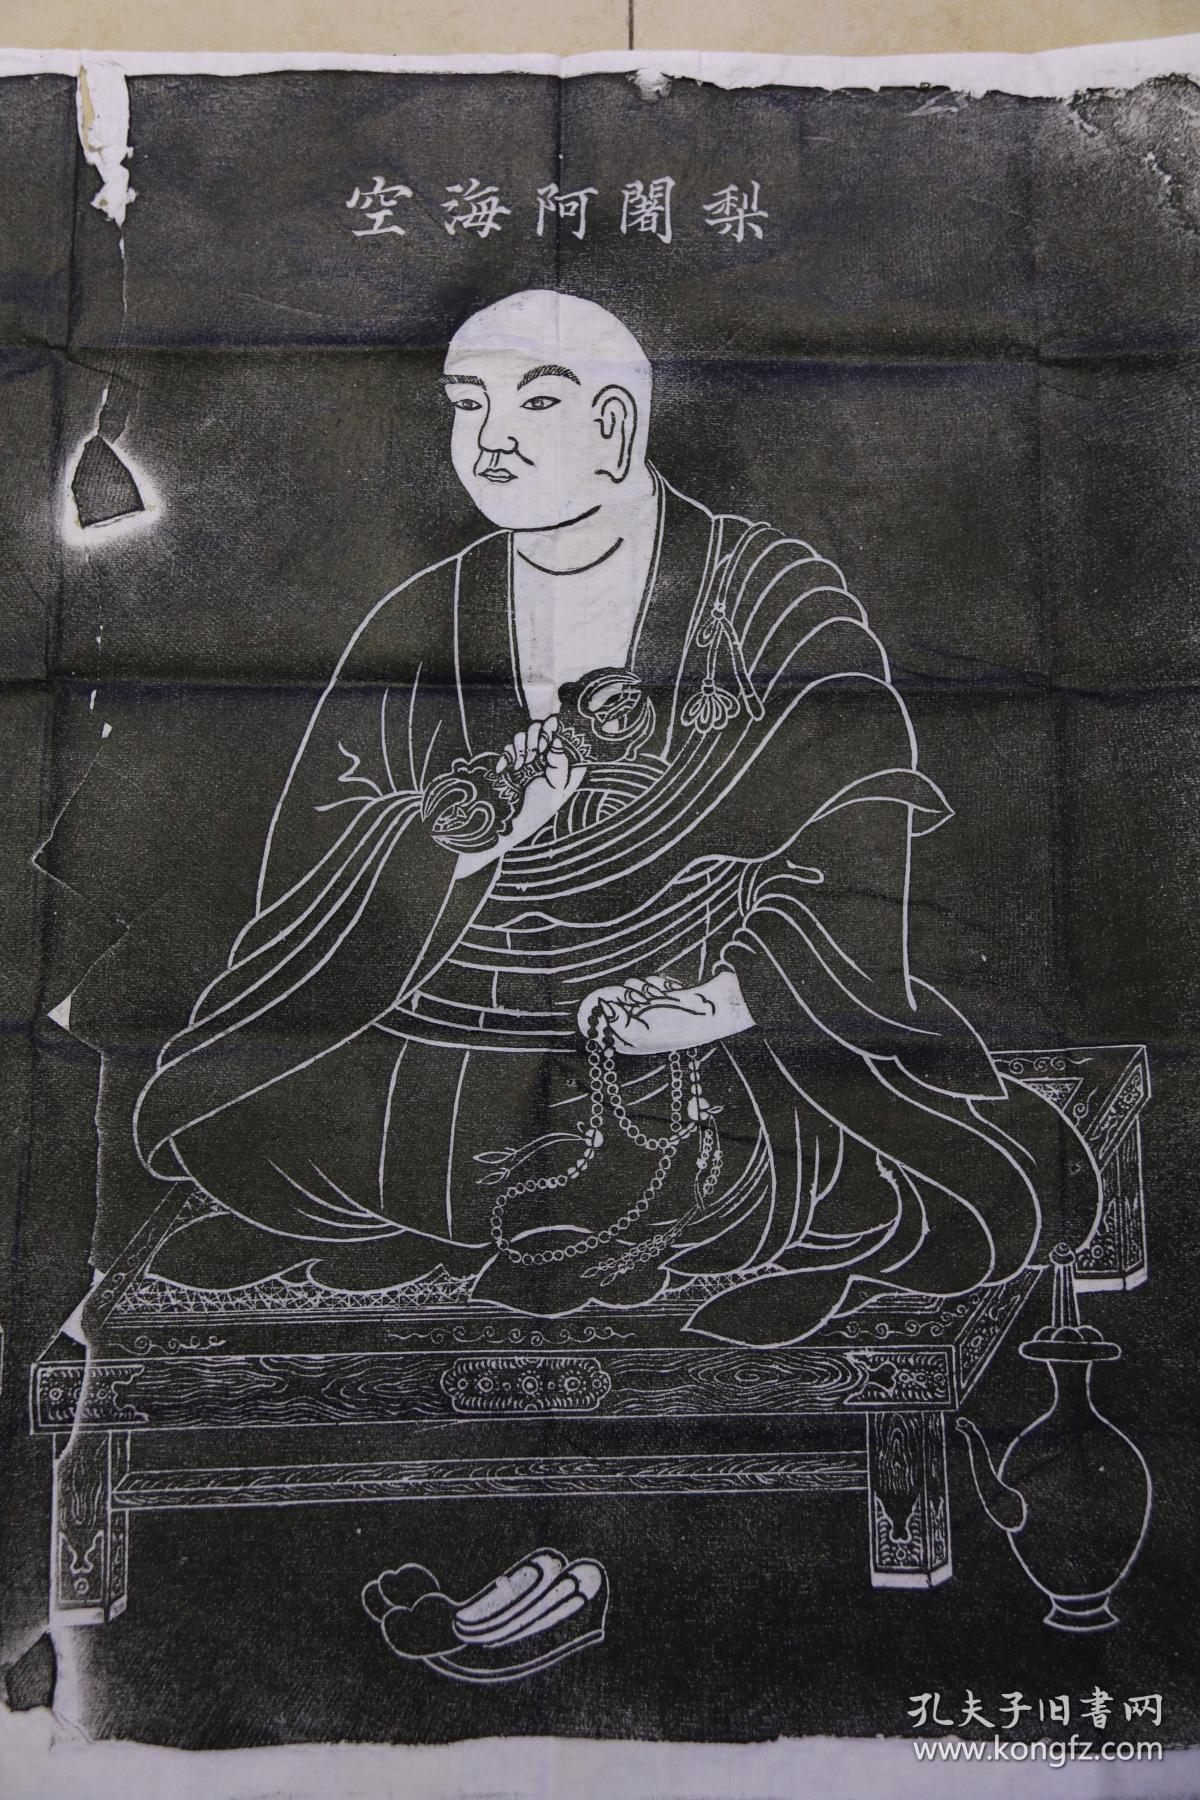 空海阿闍梨
孔夫子旧書网
www.kongfz.com